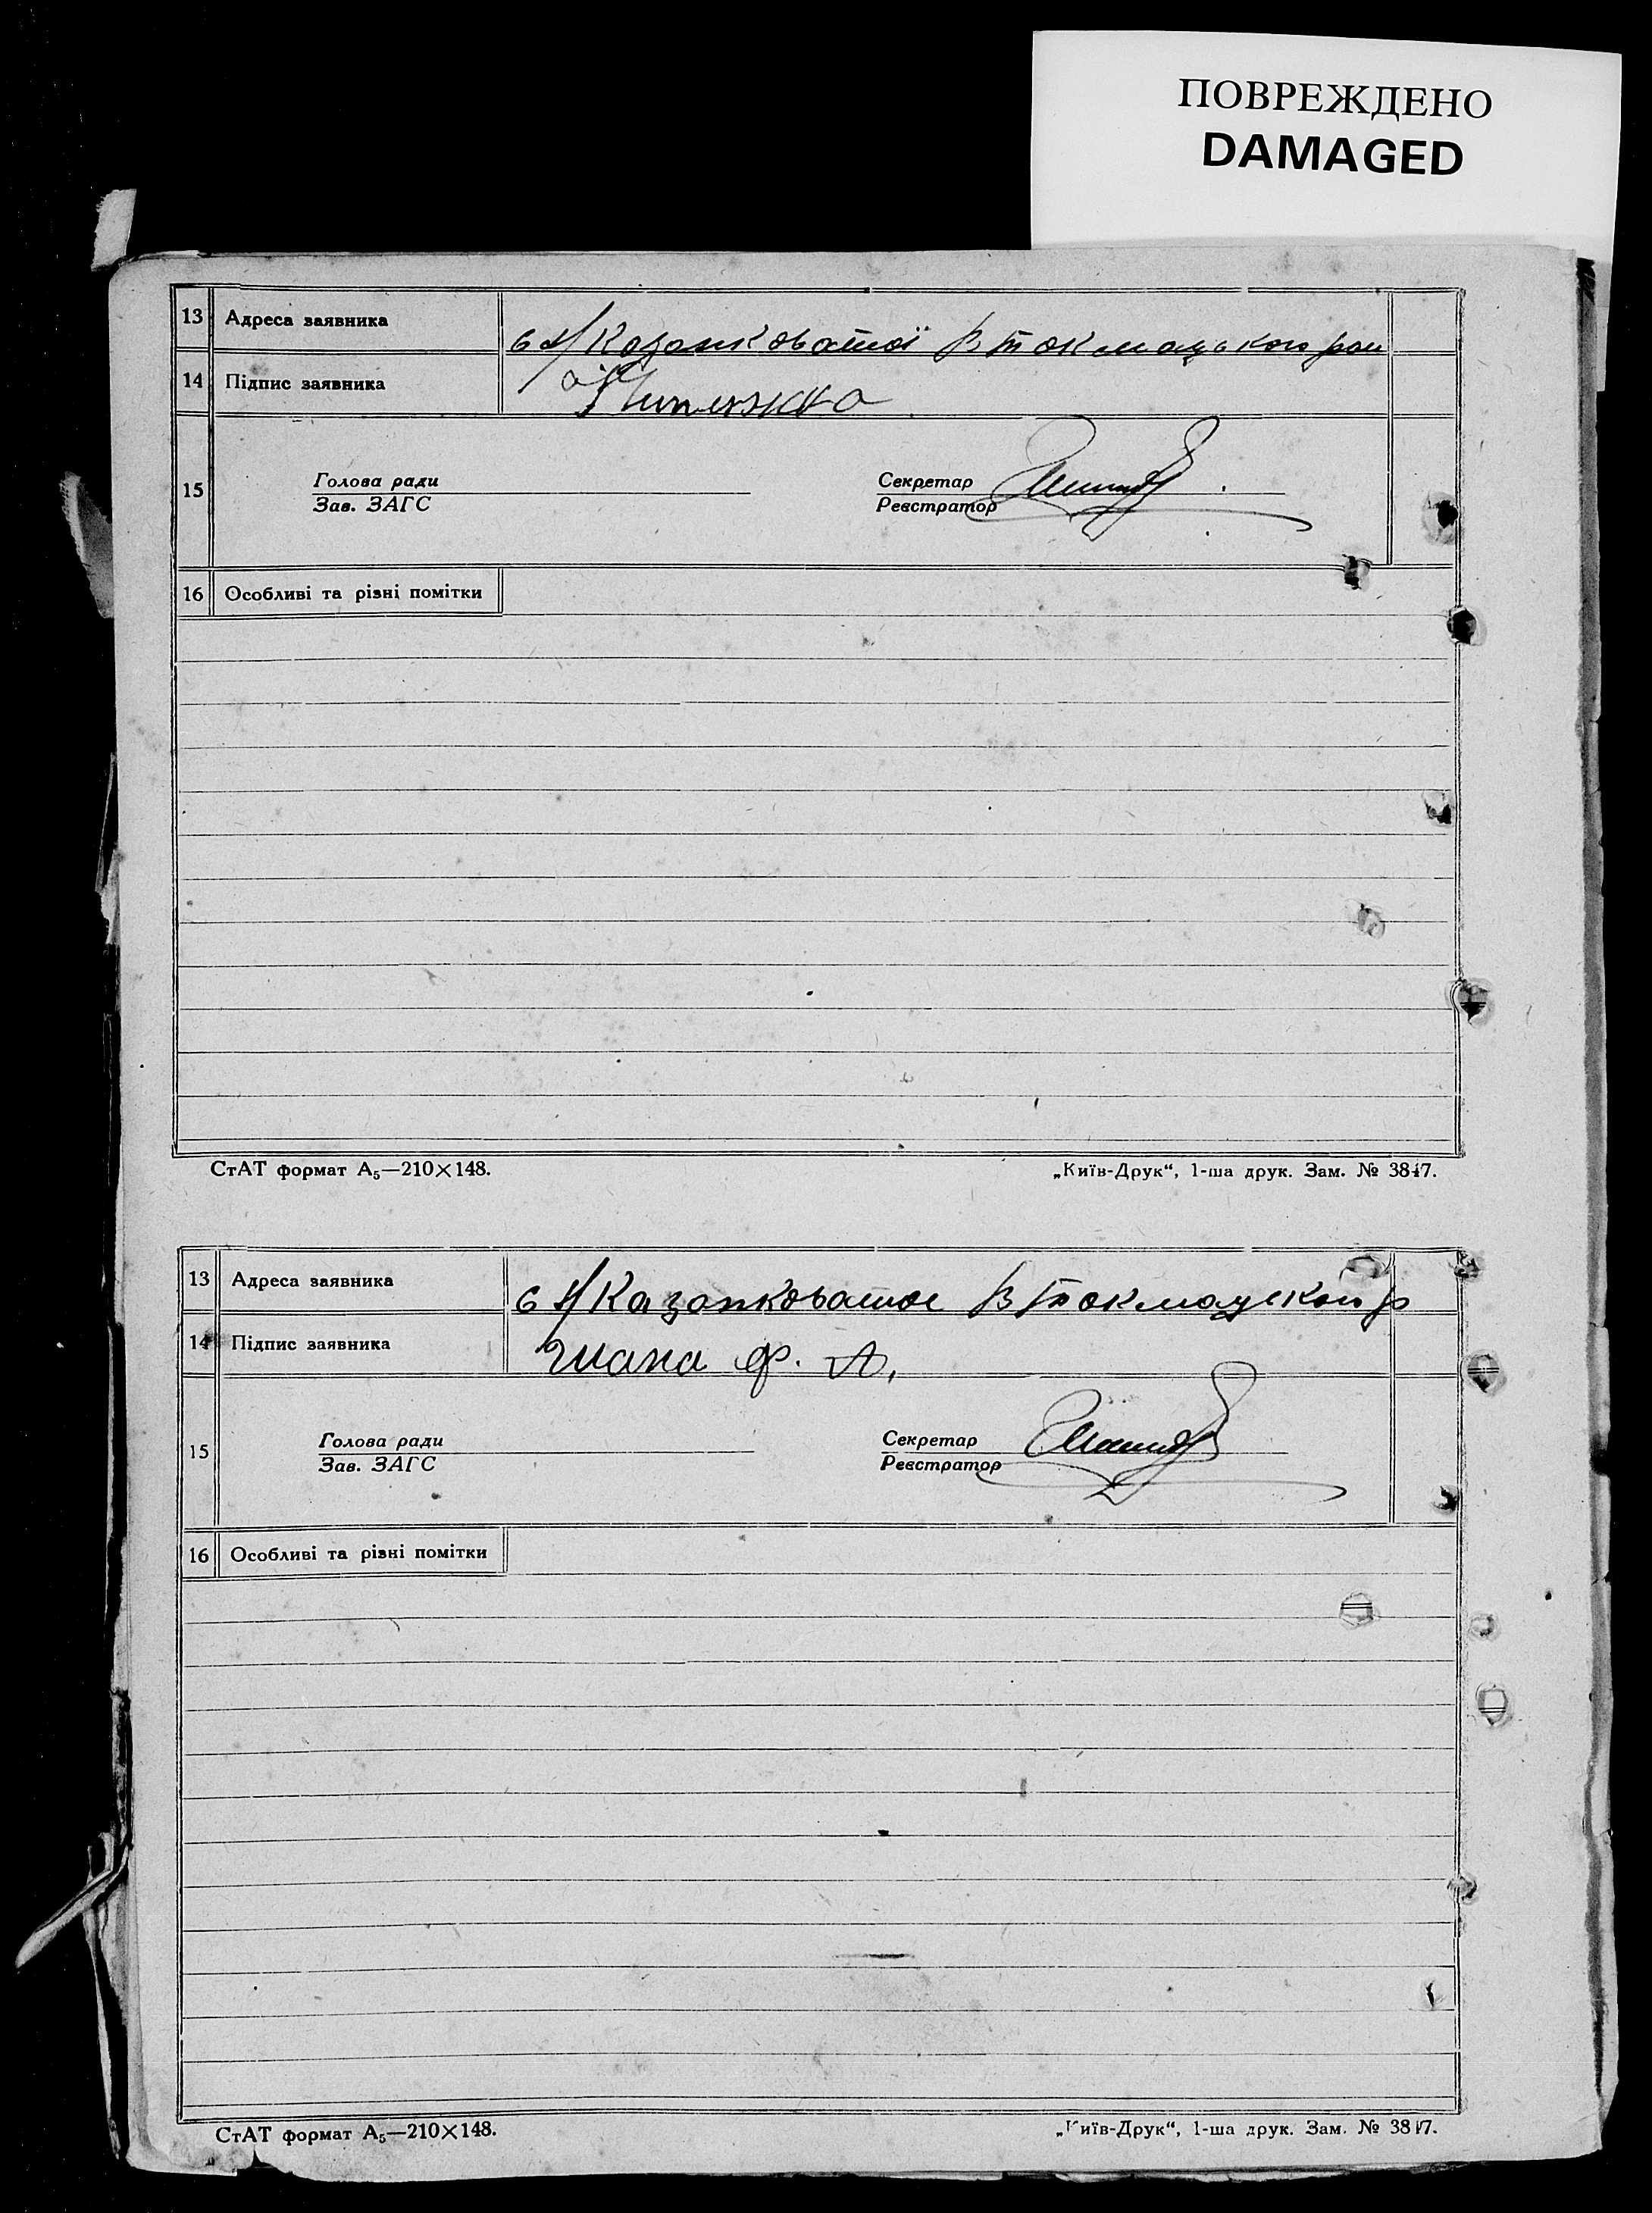 ПОВРЕЖДЕНО
DAMAGED
13 Адреса заявника с Н/Казанковатої В Токмацького рай
14 Підпис заявника
15 Голова ради
Зав. ЗАГС
Секретар
Реєстратор
16 Особливі та різні помітки
СтАТ формат А₅—210×148. „Київ-Друк“, 1-ша друк. Зам. № 3847.
13 Адреса заявника с Н/Казанковатое В Токмацького р
14 Підпис заявника Ф. А.
15 Голова ради
Зав. ЗАГС
Секретар
Реєстратор
16 Особливі та різні помітки
СтАТ формат А₅—210×148. „Київ-Друк“, 1-ша друк. Зам. № 3847.